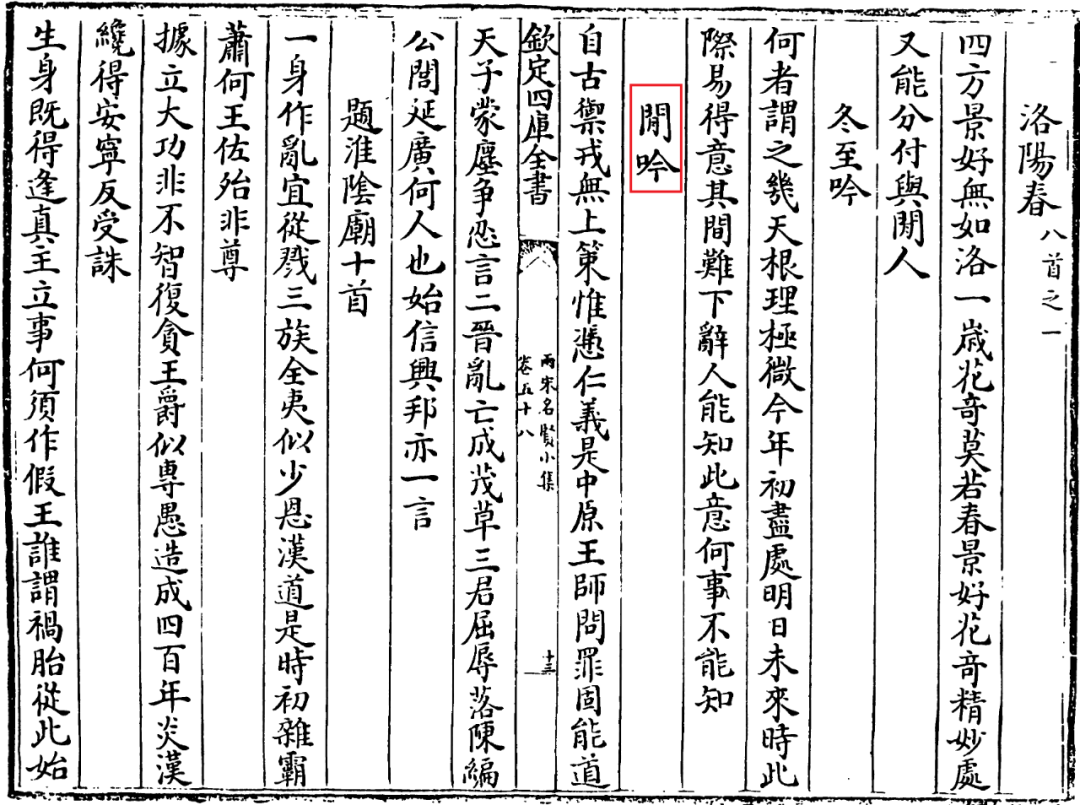 洛陽春八首之一
四方景好無如洛一歲花竒莫若春景好花竒精妙處
又能分付與閒人
冬至吟
何者謂之幾天根理極微今年初盡處明日未來時此
際易得意其間難下辭人能知此意何事不能知
閒吟
自古禦戎無上策惟憑仁義是中原王師問罪固能道
欽定四庫全書
兩宋名賢小集
卷五十八
十三
天子蒙塵争忍言二晉亂亡成茂草三君屈辱落陳編
公閭延廣何人也始信興邦亦一言
題淮陰廟十首
一身作亂宜從戮三族全夷似少恩漢道是時初雜霸
蕭何王佐殆非尊
據立大功非不智復貪王爵似專愚造成四百年炎漢
纔得安寧反受誅
生身既得逢真王立事何須作假王誰謂禍胎從此始